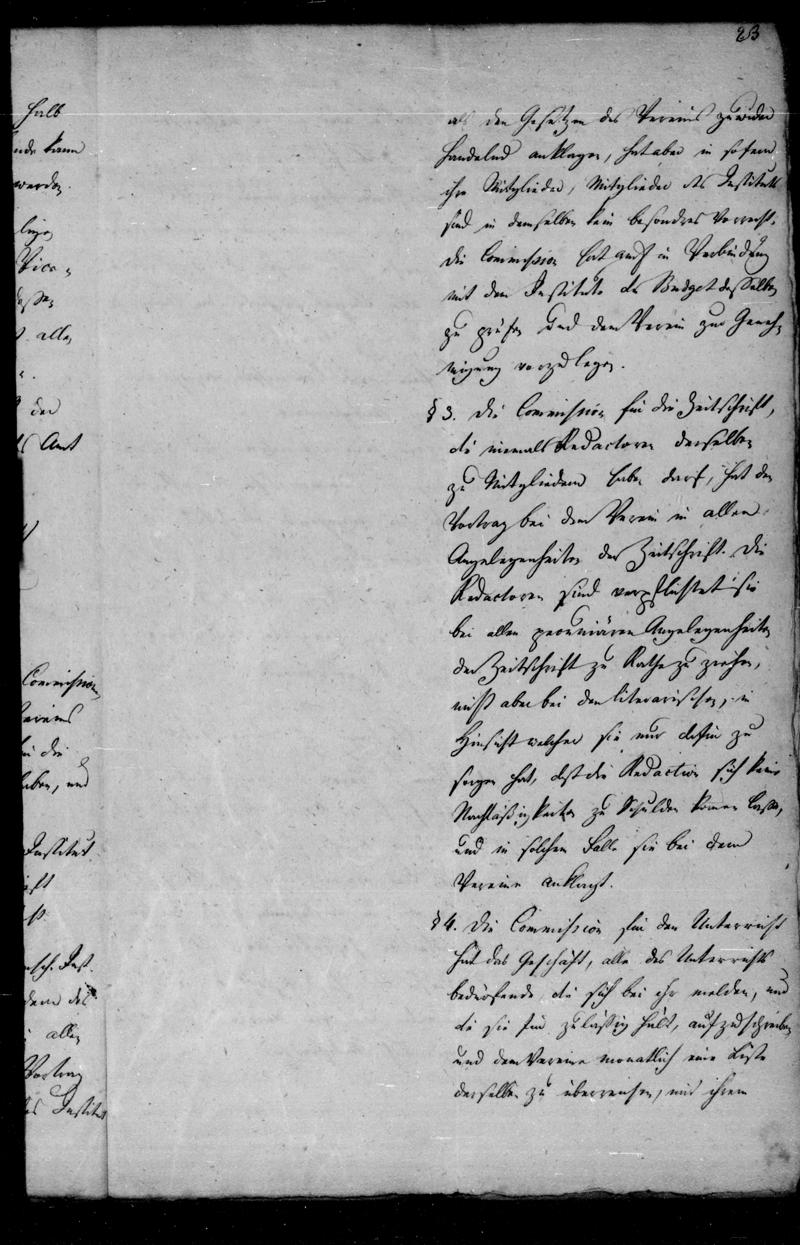 23
halb
kann
werden.
Vice-
alle
der
Amt
Commission,
Vereins
die
haben, und
Institut
Inst.
des
alle
Vortrag
Institut
als den Gesetzen des Vereins zuwider
handelnd anklagen, hat aber in sofern
ihre Mitglieder, Mitglieder des Instituts
sind in demselben kein besondres Vorrecht.
Die Commission hat auch in Verbindung
mit dem Institute das Budget desselben
zu prüfen und dem Verein zur Geneh-
migung vorzulegen.
§ 3. Die Commission für die Zeitschrift,
die niemals Redactoren derselben
zu Mitgliedern haben darf, hat den
Vortrag bei dem Verein in allen
Angelegenheiten der Zeitschrift. Die
Redactoren sind verpflichtet sie
bei allen pecuniären Angelegenheiten
der Zeitschrift zu Rathe zu ziehen,
nicht aber bei den literarischen, in
Hinsicht welcher sie nur dafür zu
sorgen hat, daß die Redaction sich keine
Nachläßigkeiten zu Schulden komen lasse,
und in solchem Falle sie bei dem
Vereine anklagt.
§ 4. Die Commission für den Unterricht
hat das Geschäft, alle des Unterrichts
bedürfende die sich bei ihr melden, und
die sie für zulässig hält, aufzuschreiben
und dem Vereine monatlich eine Liste
derselben zu überreichen, mit ihrem